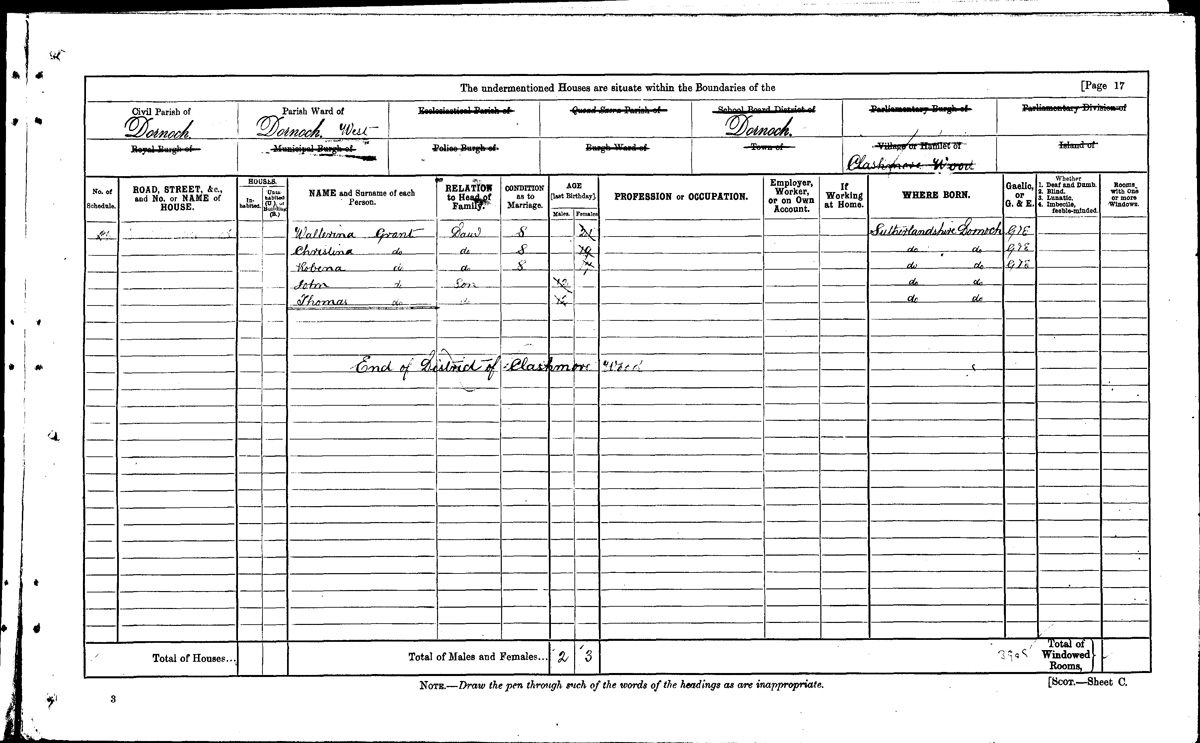 The undermentioned Houses are situate within the Boundaries of the [Page 17
Civil Parish of Parish Ward of Ecclesiastical Parish of Quoad Sacra Parish of School Board District of Parliamentary Burgh of Parliamentary Division of
Dornoch. Dornoch. West Dornoch.
Royal Burgh of Municipal Burgh of Police Burgh of Burgh Ward of Town of Village or Hamlet of Island of
Clashmore Wood
No. of Schedule. ROAD, STREET, &c., and No. or NAME of HOUSE. HOUSES. Inhabited. Uninhabited (U.), or Building (B.) NAME and Surname of each Person. RELATION to Head of Family. CONDITION as to Marriage. AGE [last Birthday]. Males. Females. PROFESSION or OCCUPATION. Employer, Worker, or on Own Account. If Working at Home. WHERE BORN. Gaelic, or G. & E. Whether 1. Deaf and Dumb. 2. Blind. 3. Lunatic. 4. Imbecile, feeble-minded. Rooms, with One or more Windows.
Wallerina Grant Daur S 21 Sutherlandshire Dornoch G&E
Christina do do S do do G&E
Robena do do S do do G&E
John do Son 12 do do
Thomas do do 12 do do
End of District of Clashmore Wood
Total of Houses... Total of Males and Females... 2 3 Total of Windowed Rooms,
NOTE.—Draw the pen through such of the words of the headings as are inappropriate. [SCOT.—Sheet C.
3